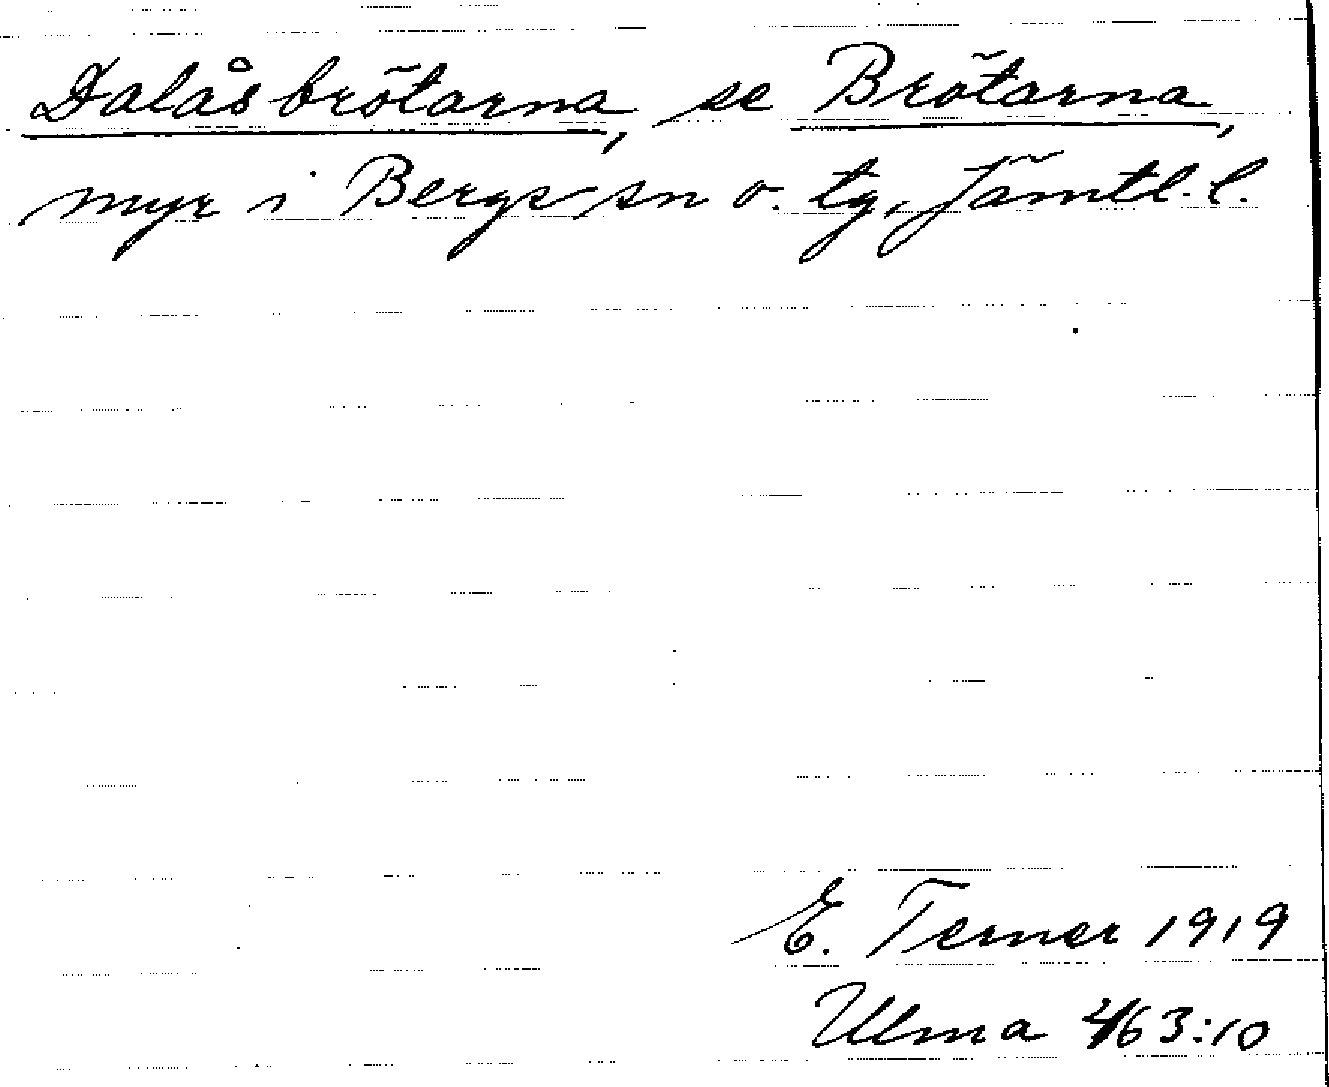 Dalåsbrötarna, se Brötarna,
myr i Bergs sn o. tg, Jämtl. l.
E. Terner 1919
Ulma 463:10